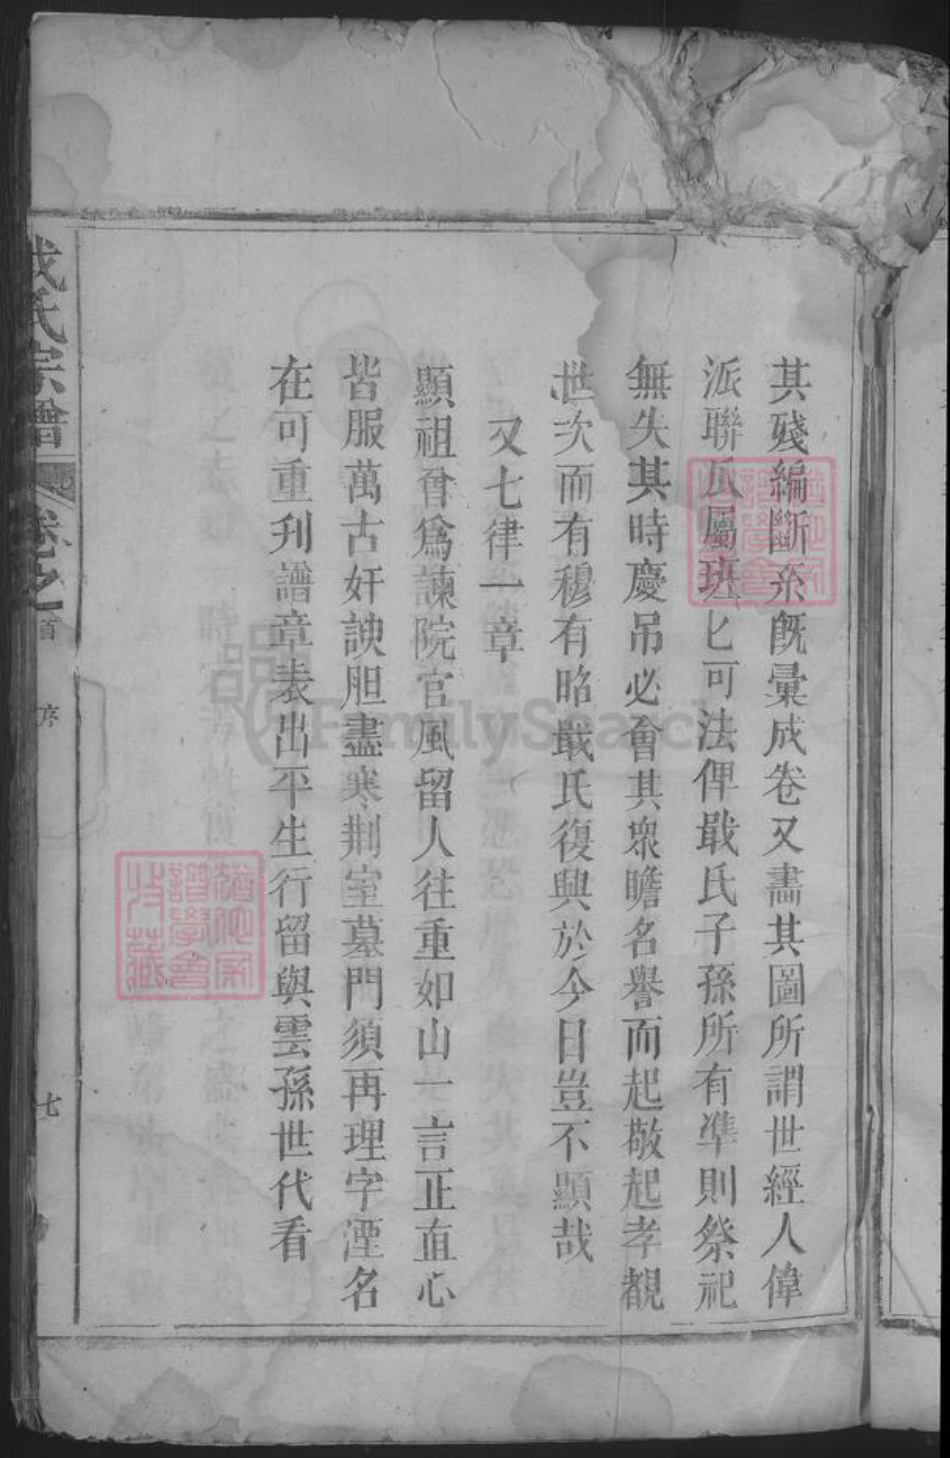 其殘編斷系既彙成卷又畵其圖所謂世經人偉
派聯瓜屬班匕可法俾戢氏子孫所有準則祭祀
無失其時慶吊必會其衆瞻名譽而起敬起孝覩
世次而有穆有昭戢氏復興於今日豈不顯哉
又七律一章
顯祖會爲諫院官風留人往重如山一言正直心
皆服萬古奸諛胆盡寒荆室墓門須再理字湮名
在可重刋譜章表出平生行留與雲孫世代看
氏宗譜
卷之首
序
七
FamilySearch
譜學會
收藏